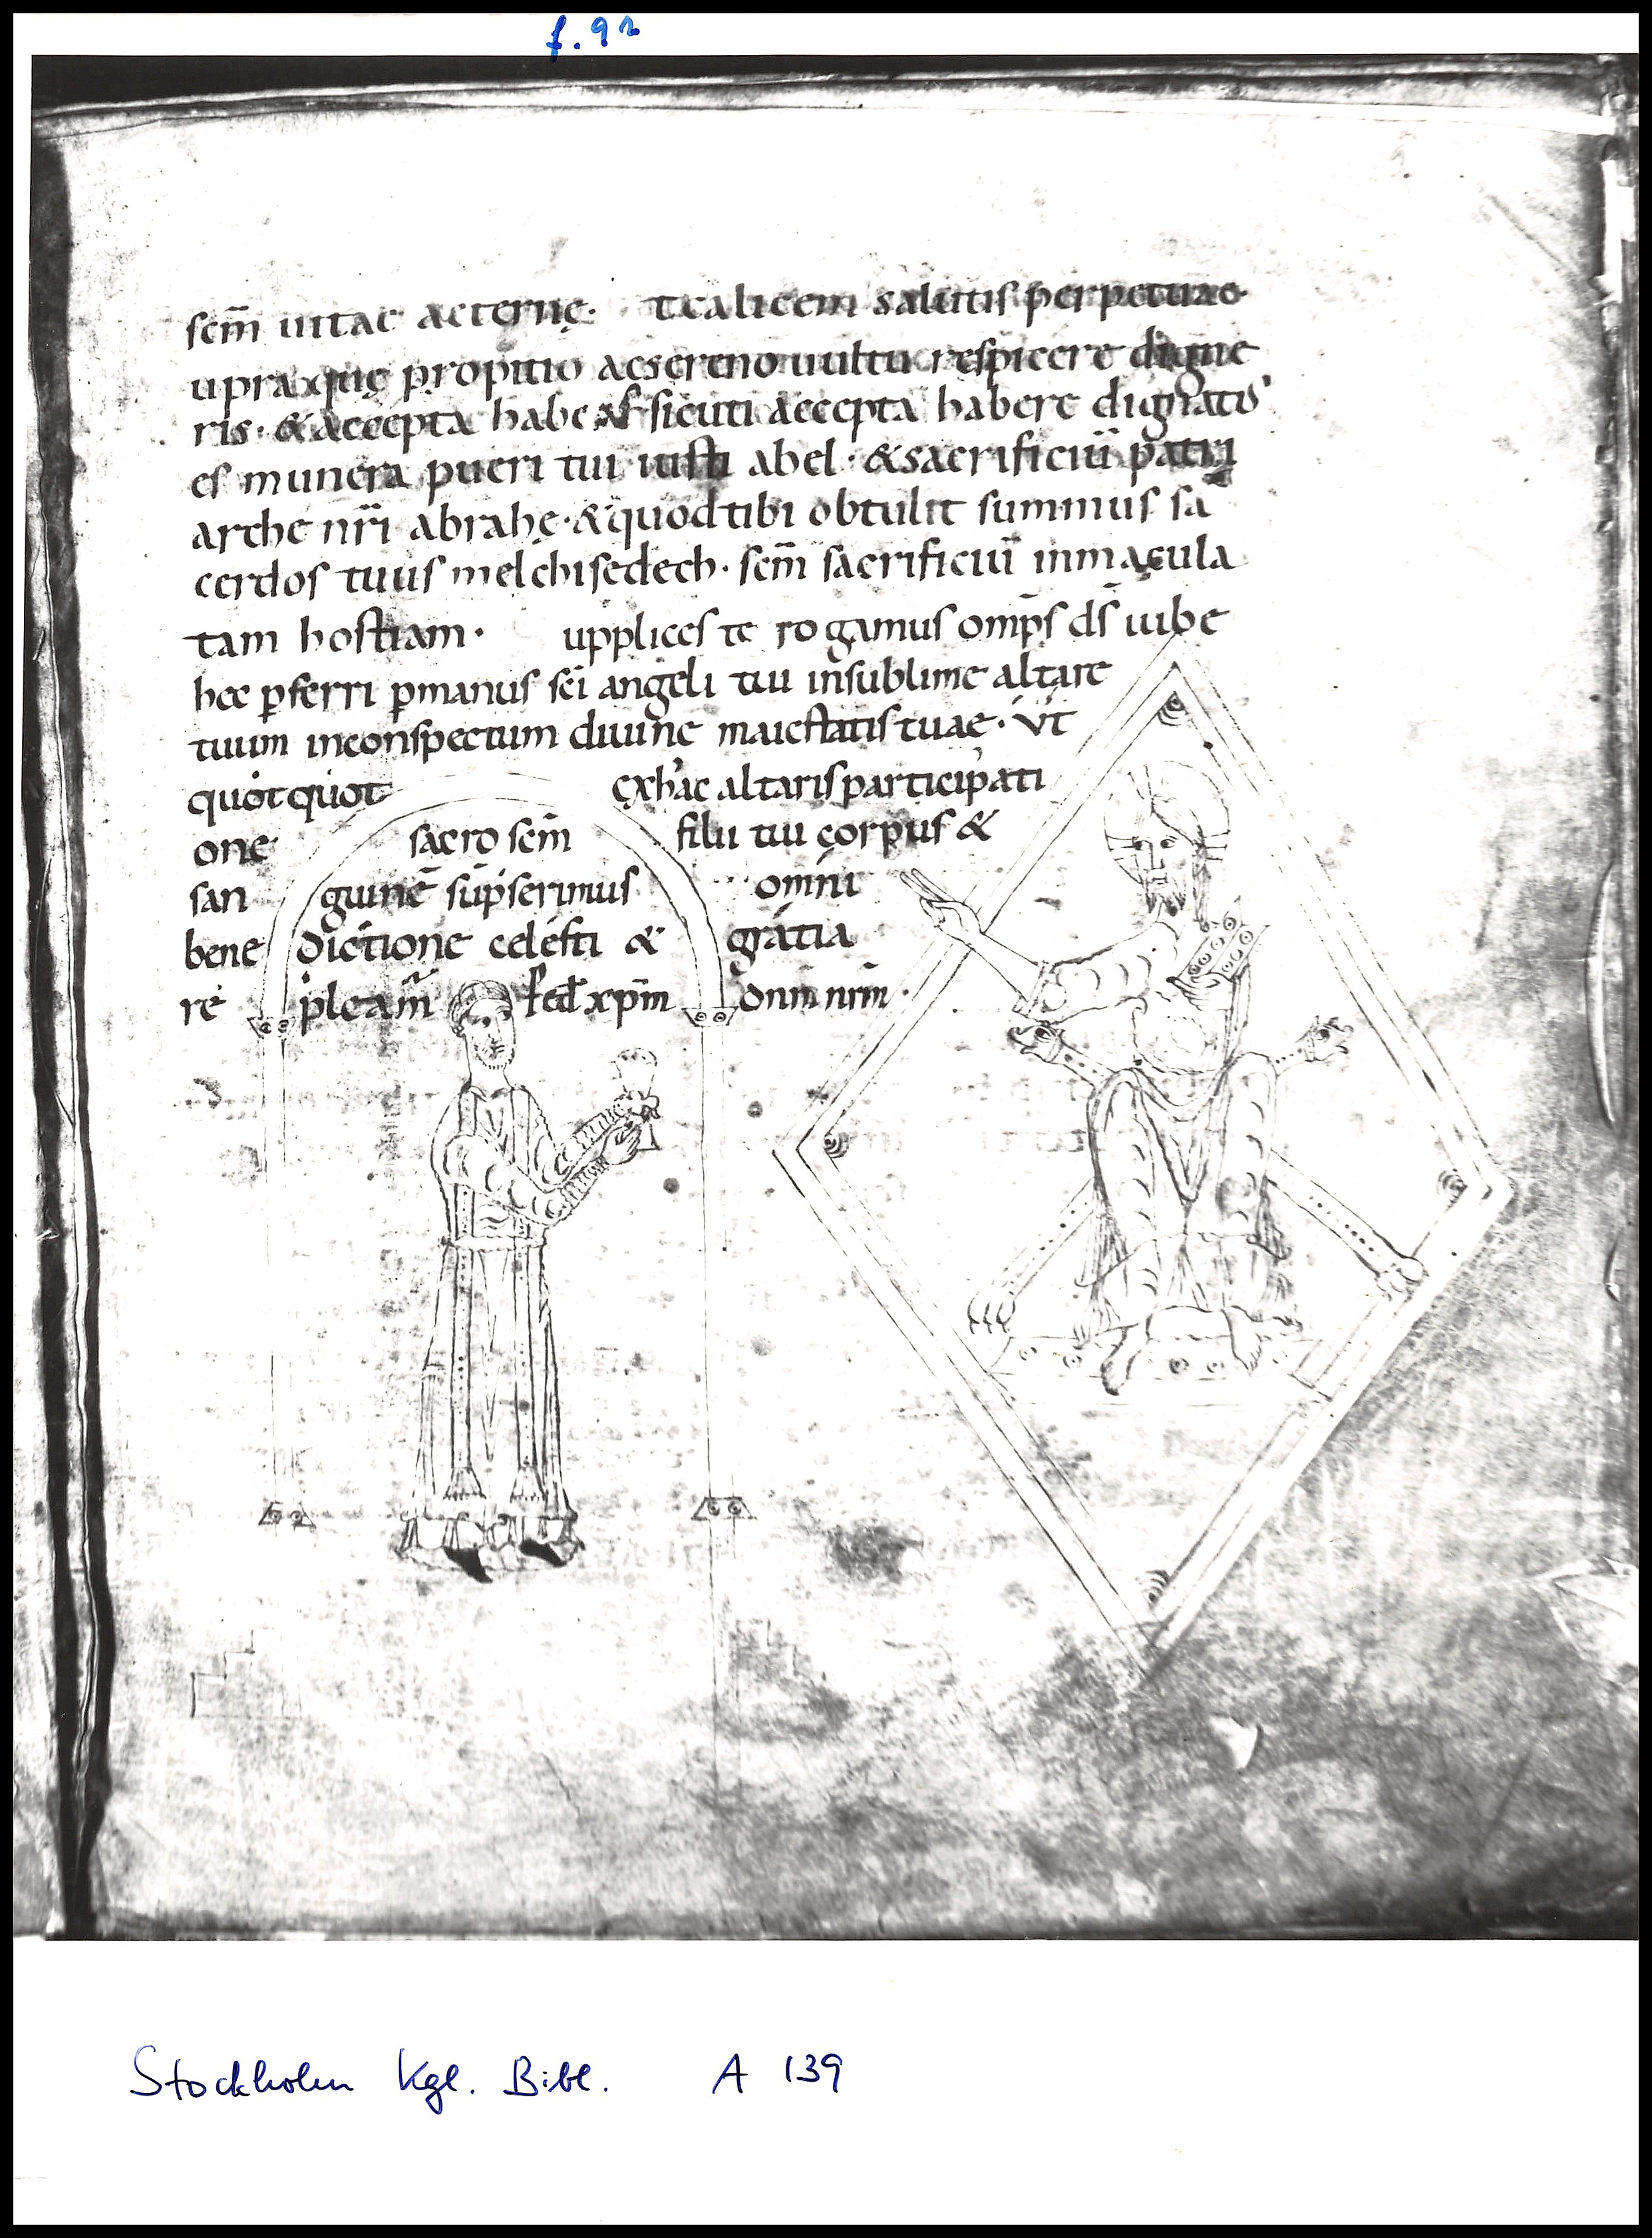 f. 9r
scm̄ uitae aeternę. t calicem salutis perpetuae.
upra quę propitio ac sereno uultu respicere digne
ris. & accepta habe sicuti accepta habere dignatus
es munera pueri tui iusti abel. & sacrificiū patri
arche nr̄i abrahę. & quod tibi obtulit summus sa
cerdos tuus melchisedech. scm̄ sacrificiū inmacula
tam hostiam. upplices te rogamus omps̄ ds̄ iube
hec ꝑferri ꝑ manus sc̄i angeli tui in sublime altare
tuum in conspectum diuinę maiestatis tuae. Ut
quotquot ex hac altaris participati
one sacro scm̄ filii tui corpus &
san guinē sūpserimus omni
bene dictione celesti & gratia
re pleam̄ ꝑ eūd xpm̄ dnm̄ nrm̄.
Stockholm Kgl. Bibl. A 139